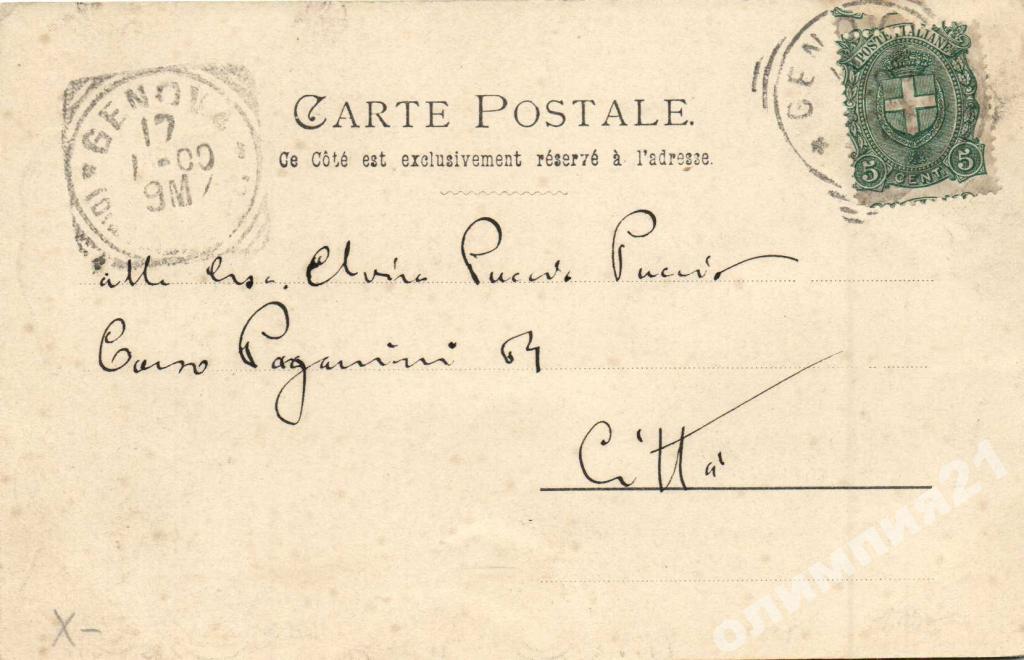 GENOVA
17
1-00
9M
GENO
POSTE ITALIANE
5 CENT. 5
CARTE POSTALE.
Ce Côté est exclusivement réservé à l'adresse.
alla Elvira Puccio
Corso Paganini
Città
X-
олимпия21